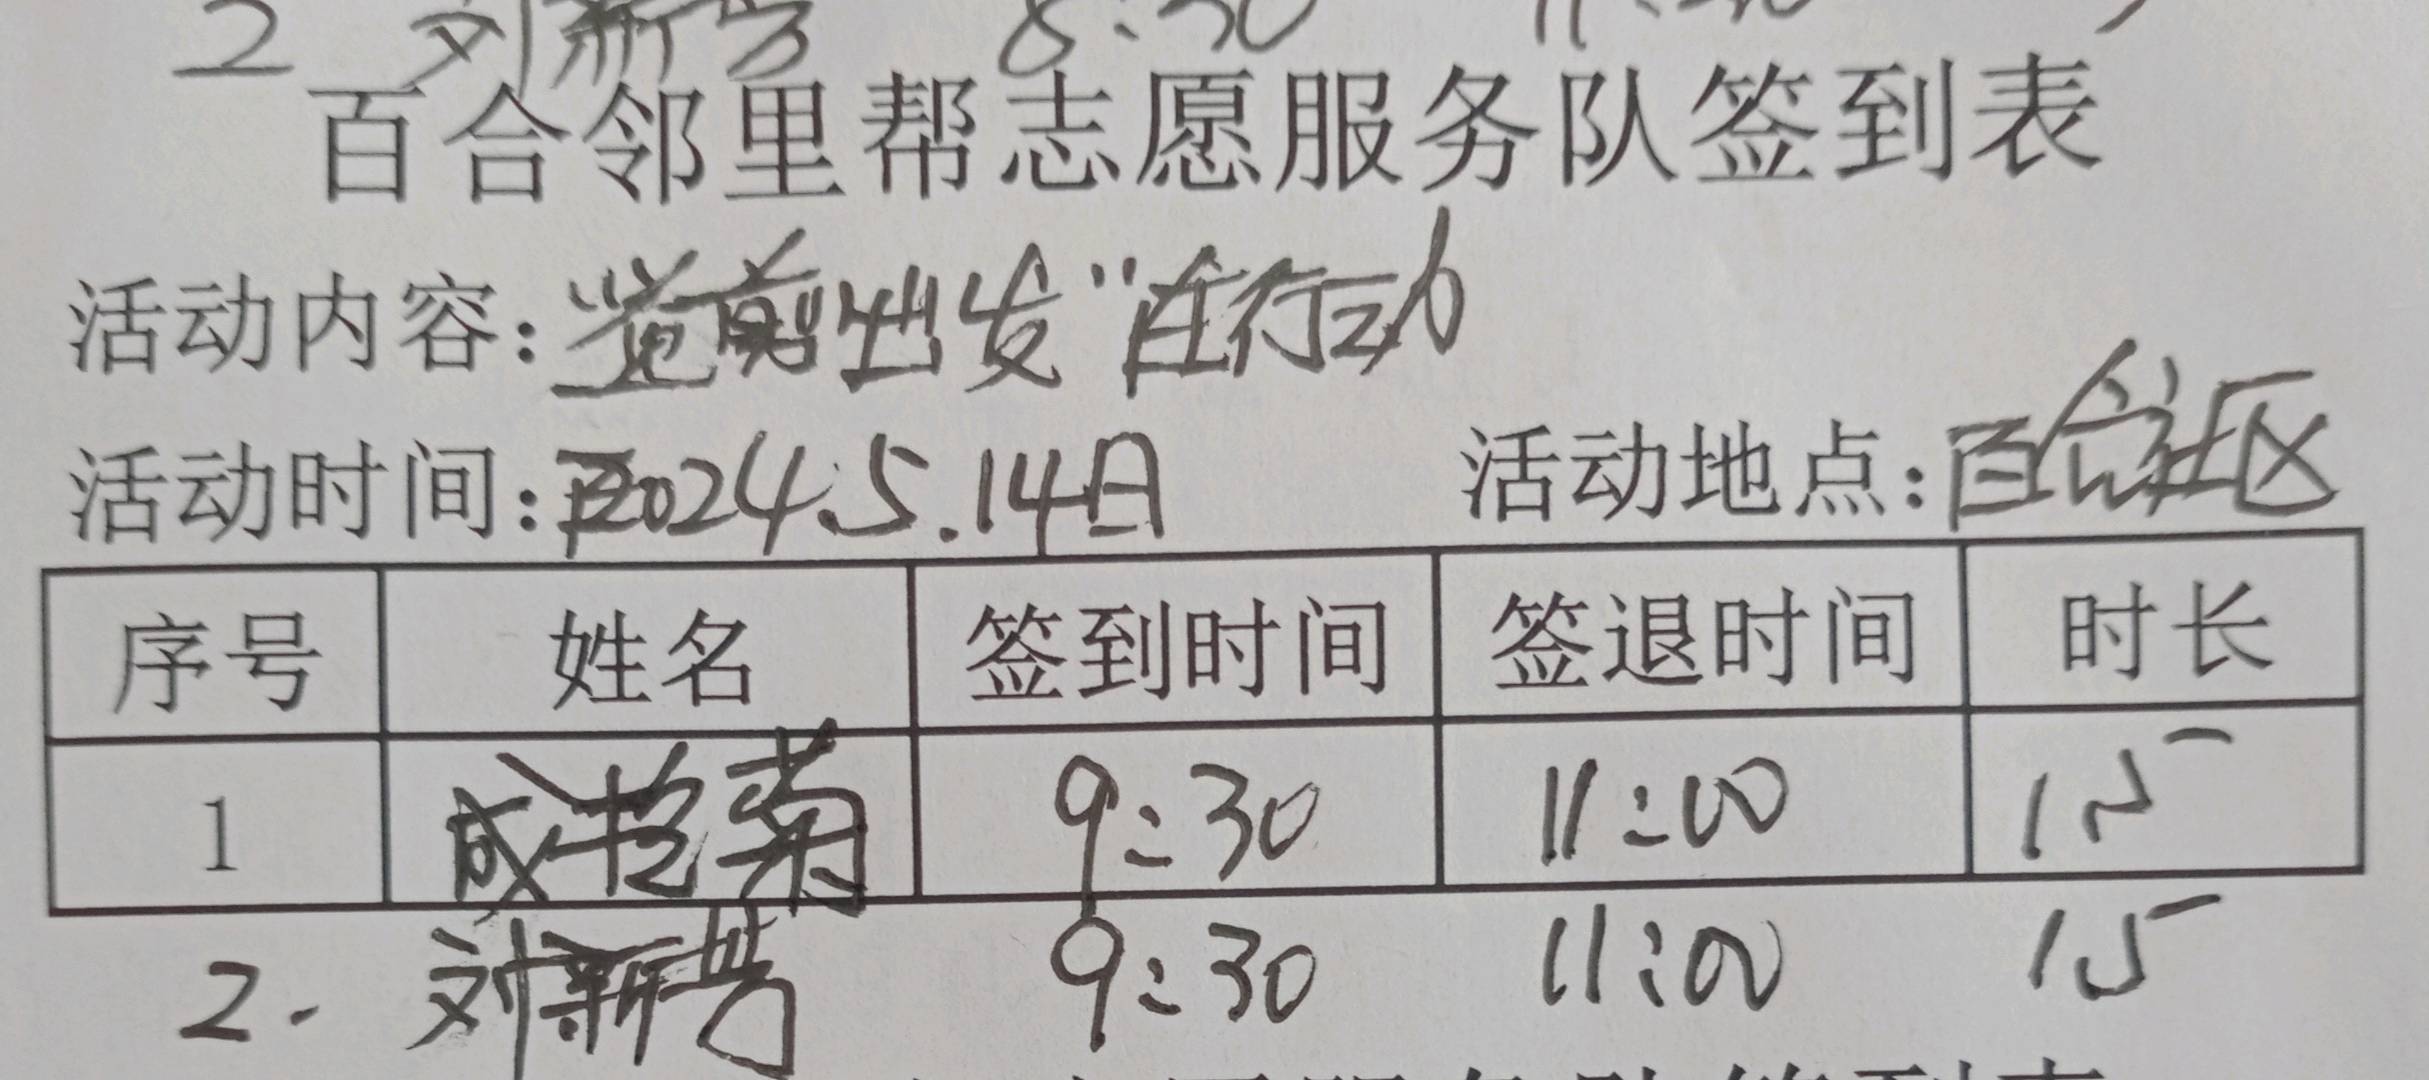 2 刘新芳 8:30
百合邻里帮志愿服务队签到表
活动内容:党剪出发"在行动
活动时间:2024.5.14日 活动地点:百合社区
序号 姓名 签到时间 签退时间 时长
1 成艳菊 9:30 11:00 1.5
2. 刘新芳 9:30 11:00 1.5